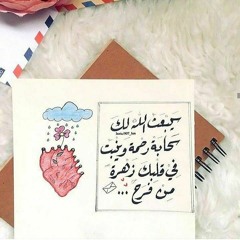 يبعث الله لك
سحابة رحمة وينبت
في قلبك زهرة
من فرح ...